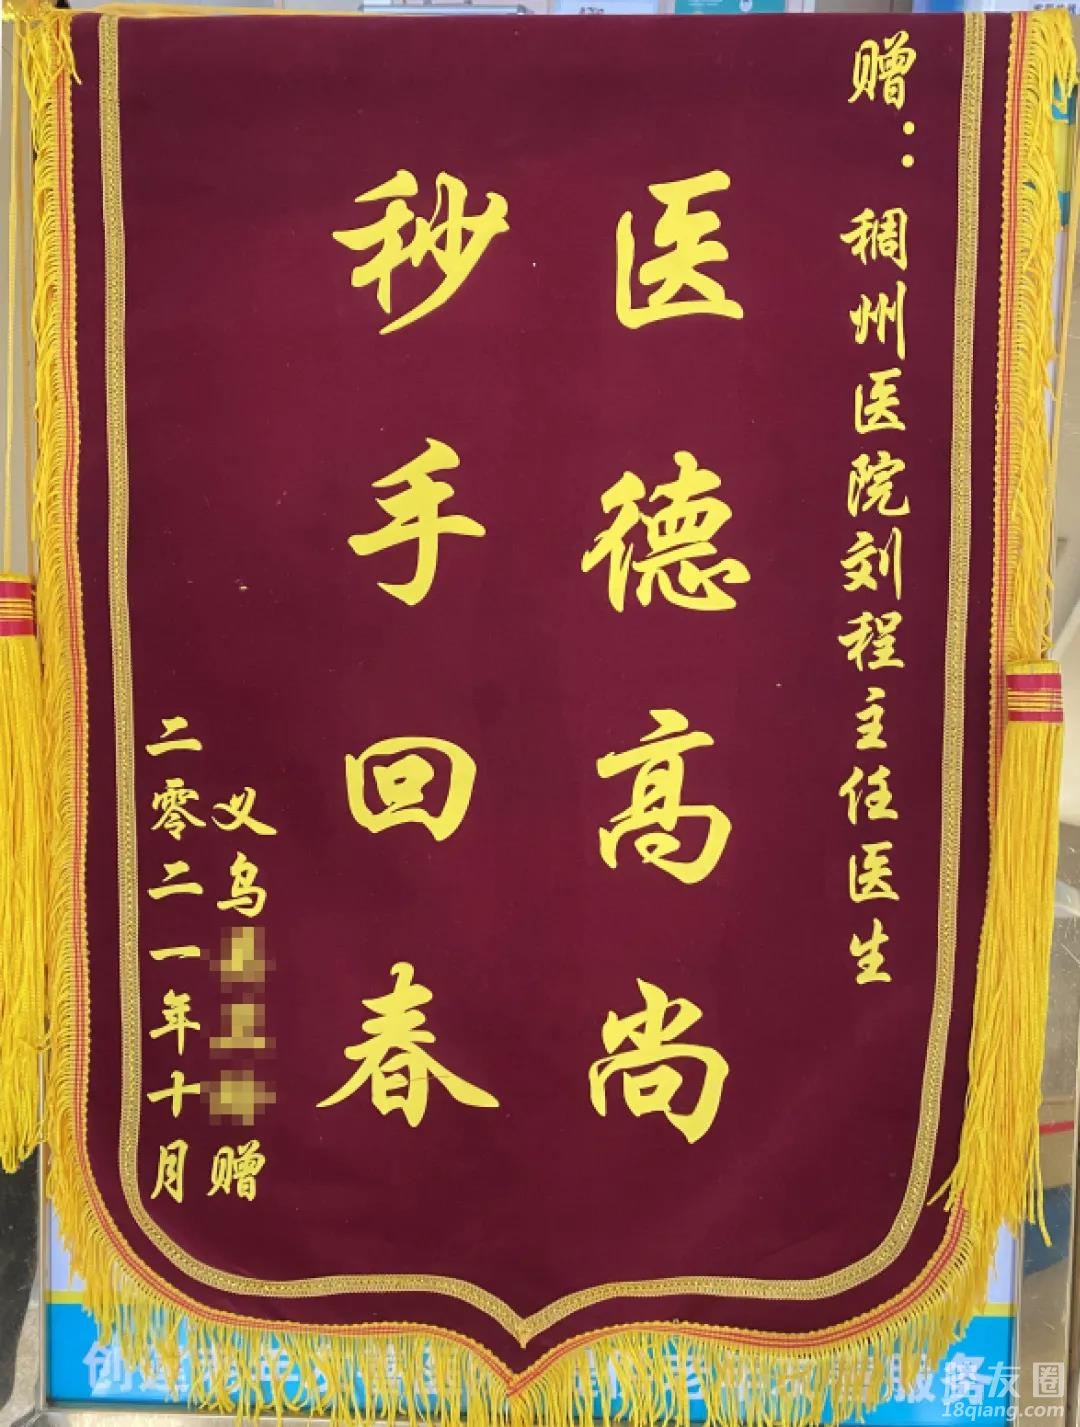 赠：稠州医院刘程主任医生
医德高尚
秒手回春
义乌 赠
二零二一年十月
服务
友圈
18qiang.com